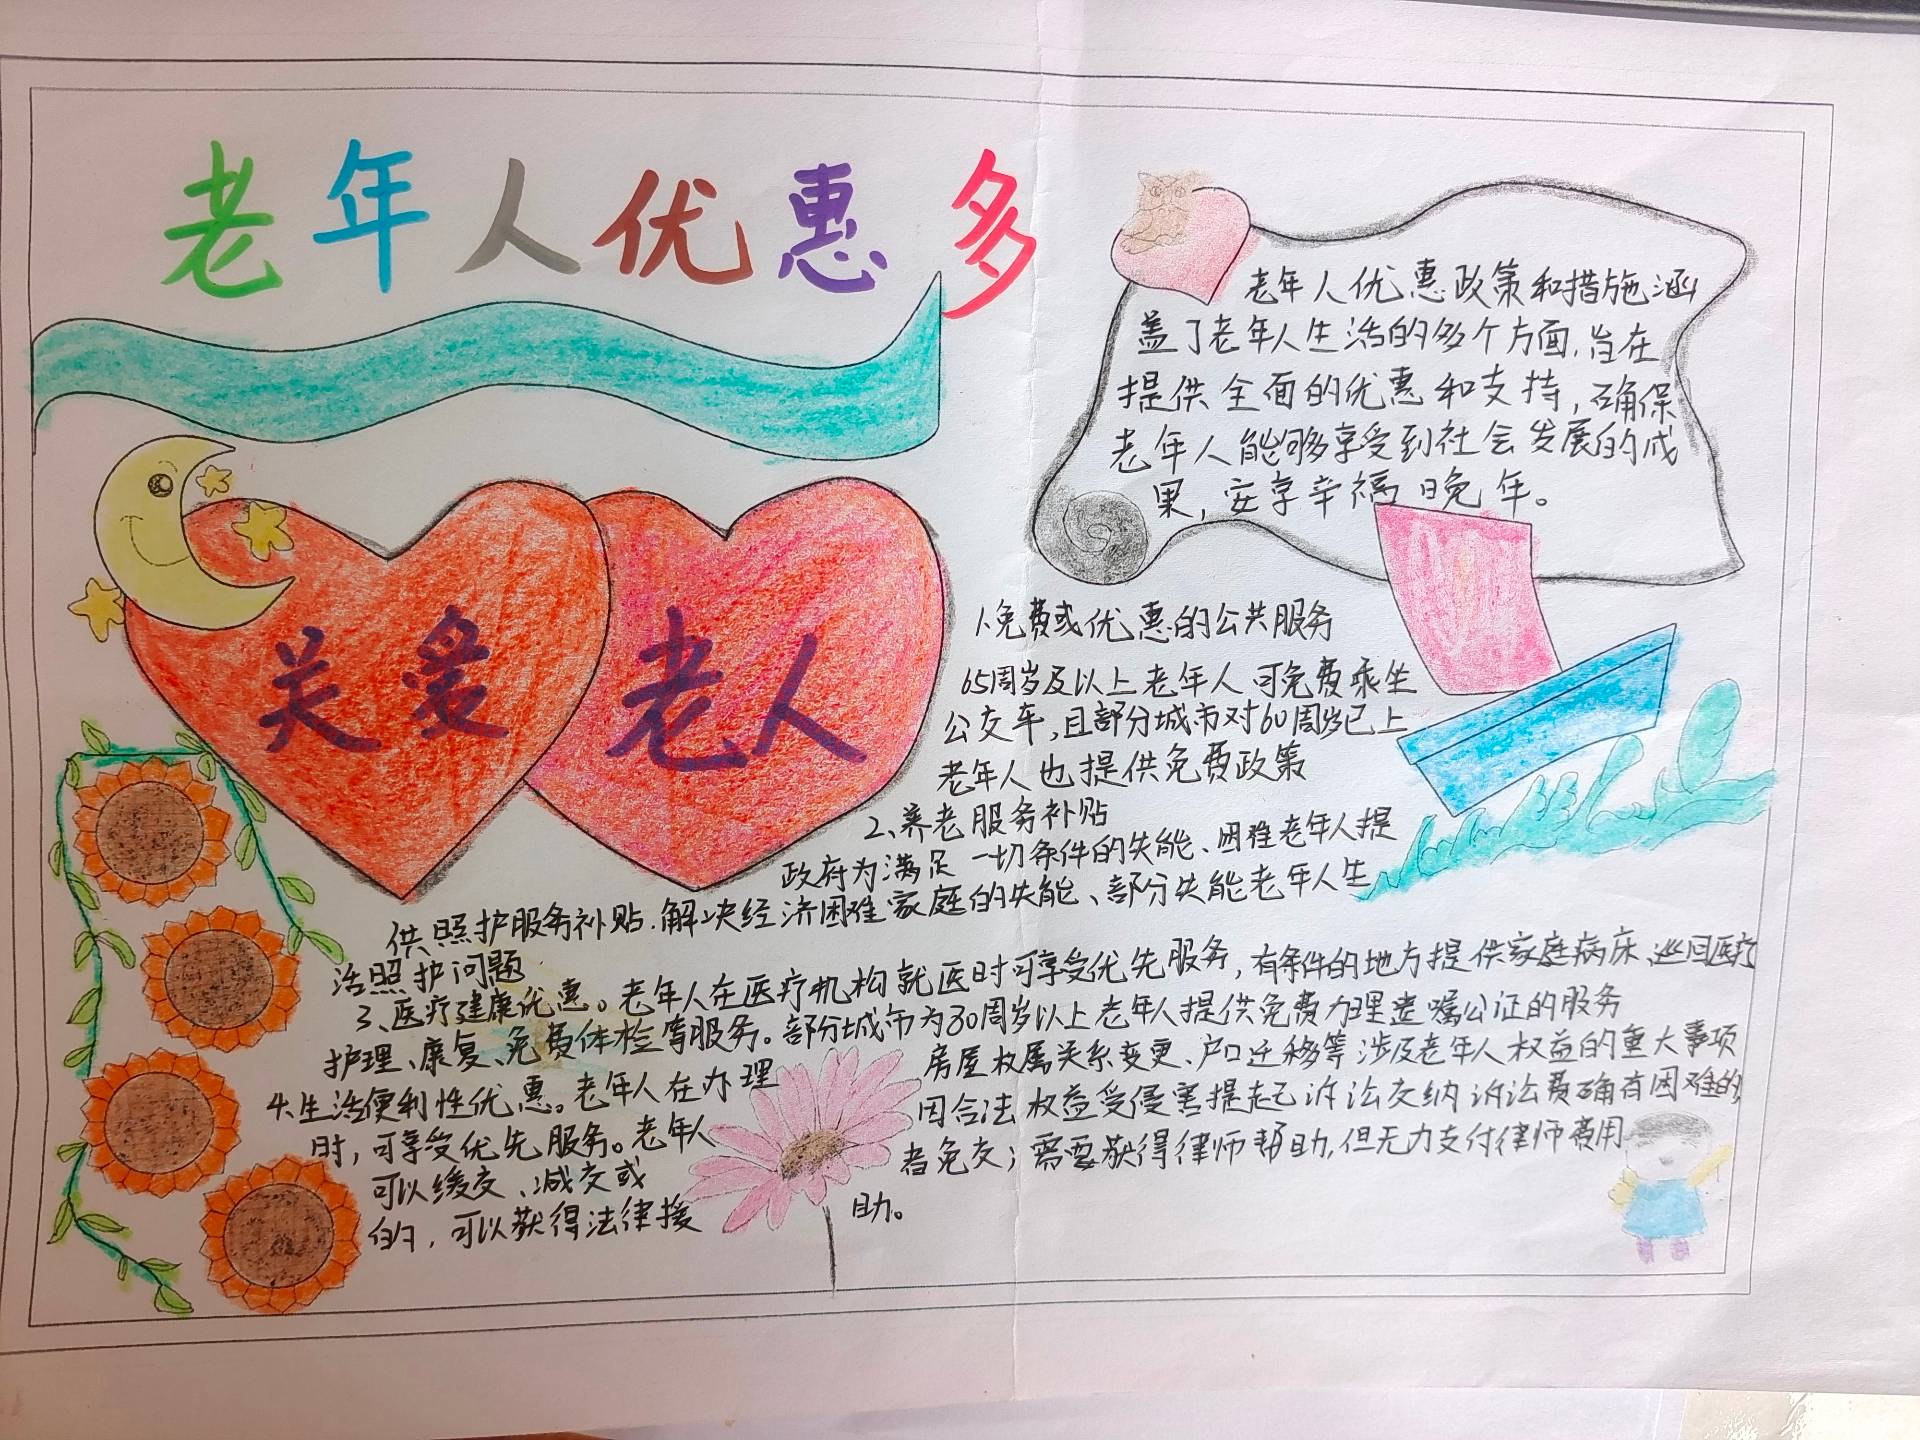 老年人优惠多
老年人优惠政策和措施涵
盖了老年人生活的多个方面,旨在
提供全面的优惠和支持,确保
老年人能够享受到社会发展的成
果,安享幸福晚年。
关爱
老人
1.免费或优惠的公共服务
65周岁及以上老年人可免费乘坐
公交车,且部分城市对60周岁已上
老年人也提供免费政策
2、养老服务补贴
政府为满足一切条件的失能、困难老年人提
供照护服务补贴.解决经济困难家庭的失能、部分失能老年人生
活照护问题
3、医疗健康优惠。老年人在医疗机构就医时可享受优先服务,有条件的地方提供家庭病床、巡回医疗
护理、康复、免费体检等服务。部分城市为80周岁以上老年人提供免费办理遗嘱公证的服务
4.生活便利性优惠。老年人在办理房屋权属关系变更、户口迁移等涉及老年人权益的重大事项
时,可享受优先服务。老年人因合法权益受侵害提起诉讼交纳诉讼费确有困难的
可以缓交、减交或者免交;需要获得律师帮助,但无力支付律师费用
的,可以获得法律援助。